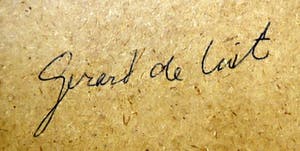 Gerard de List